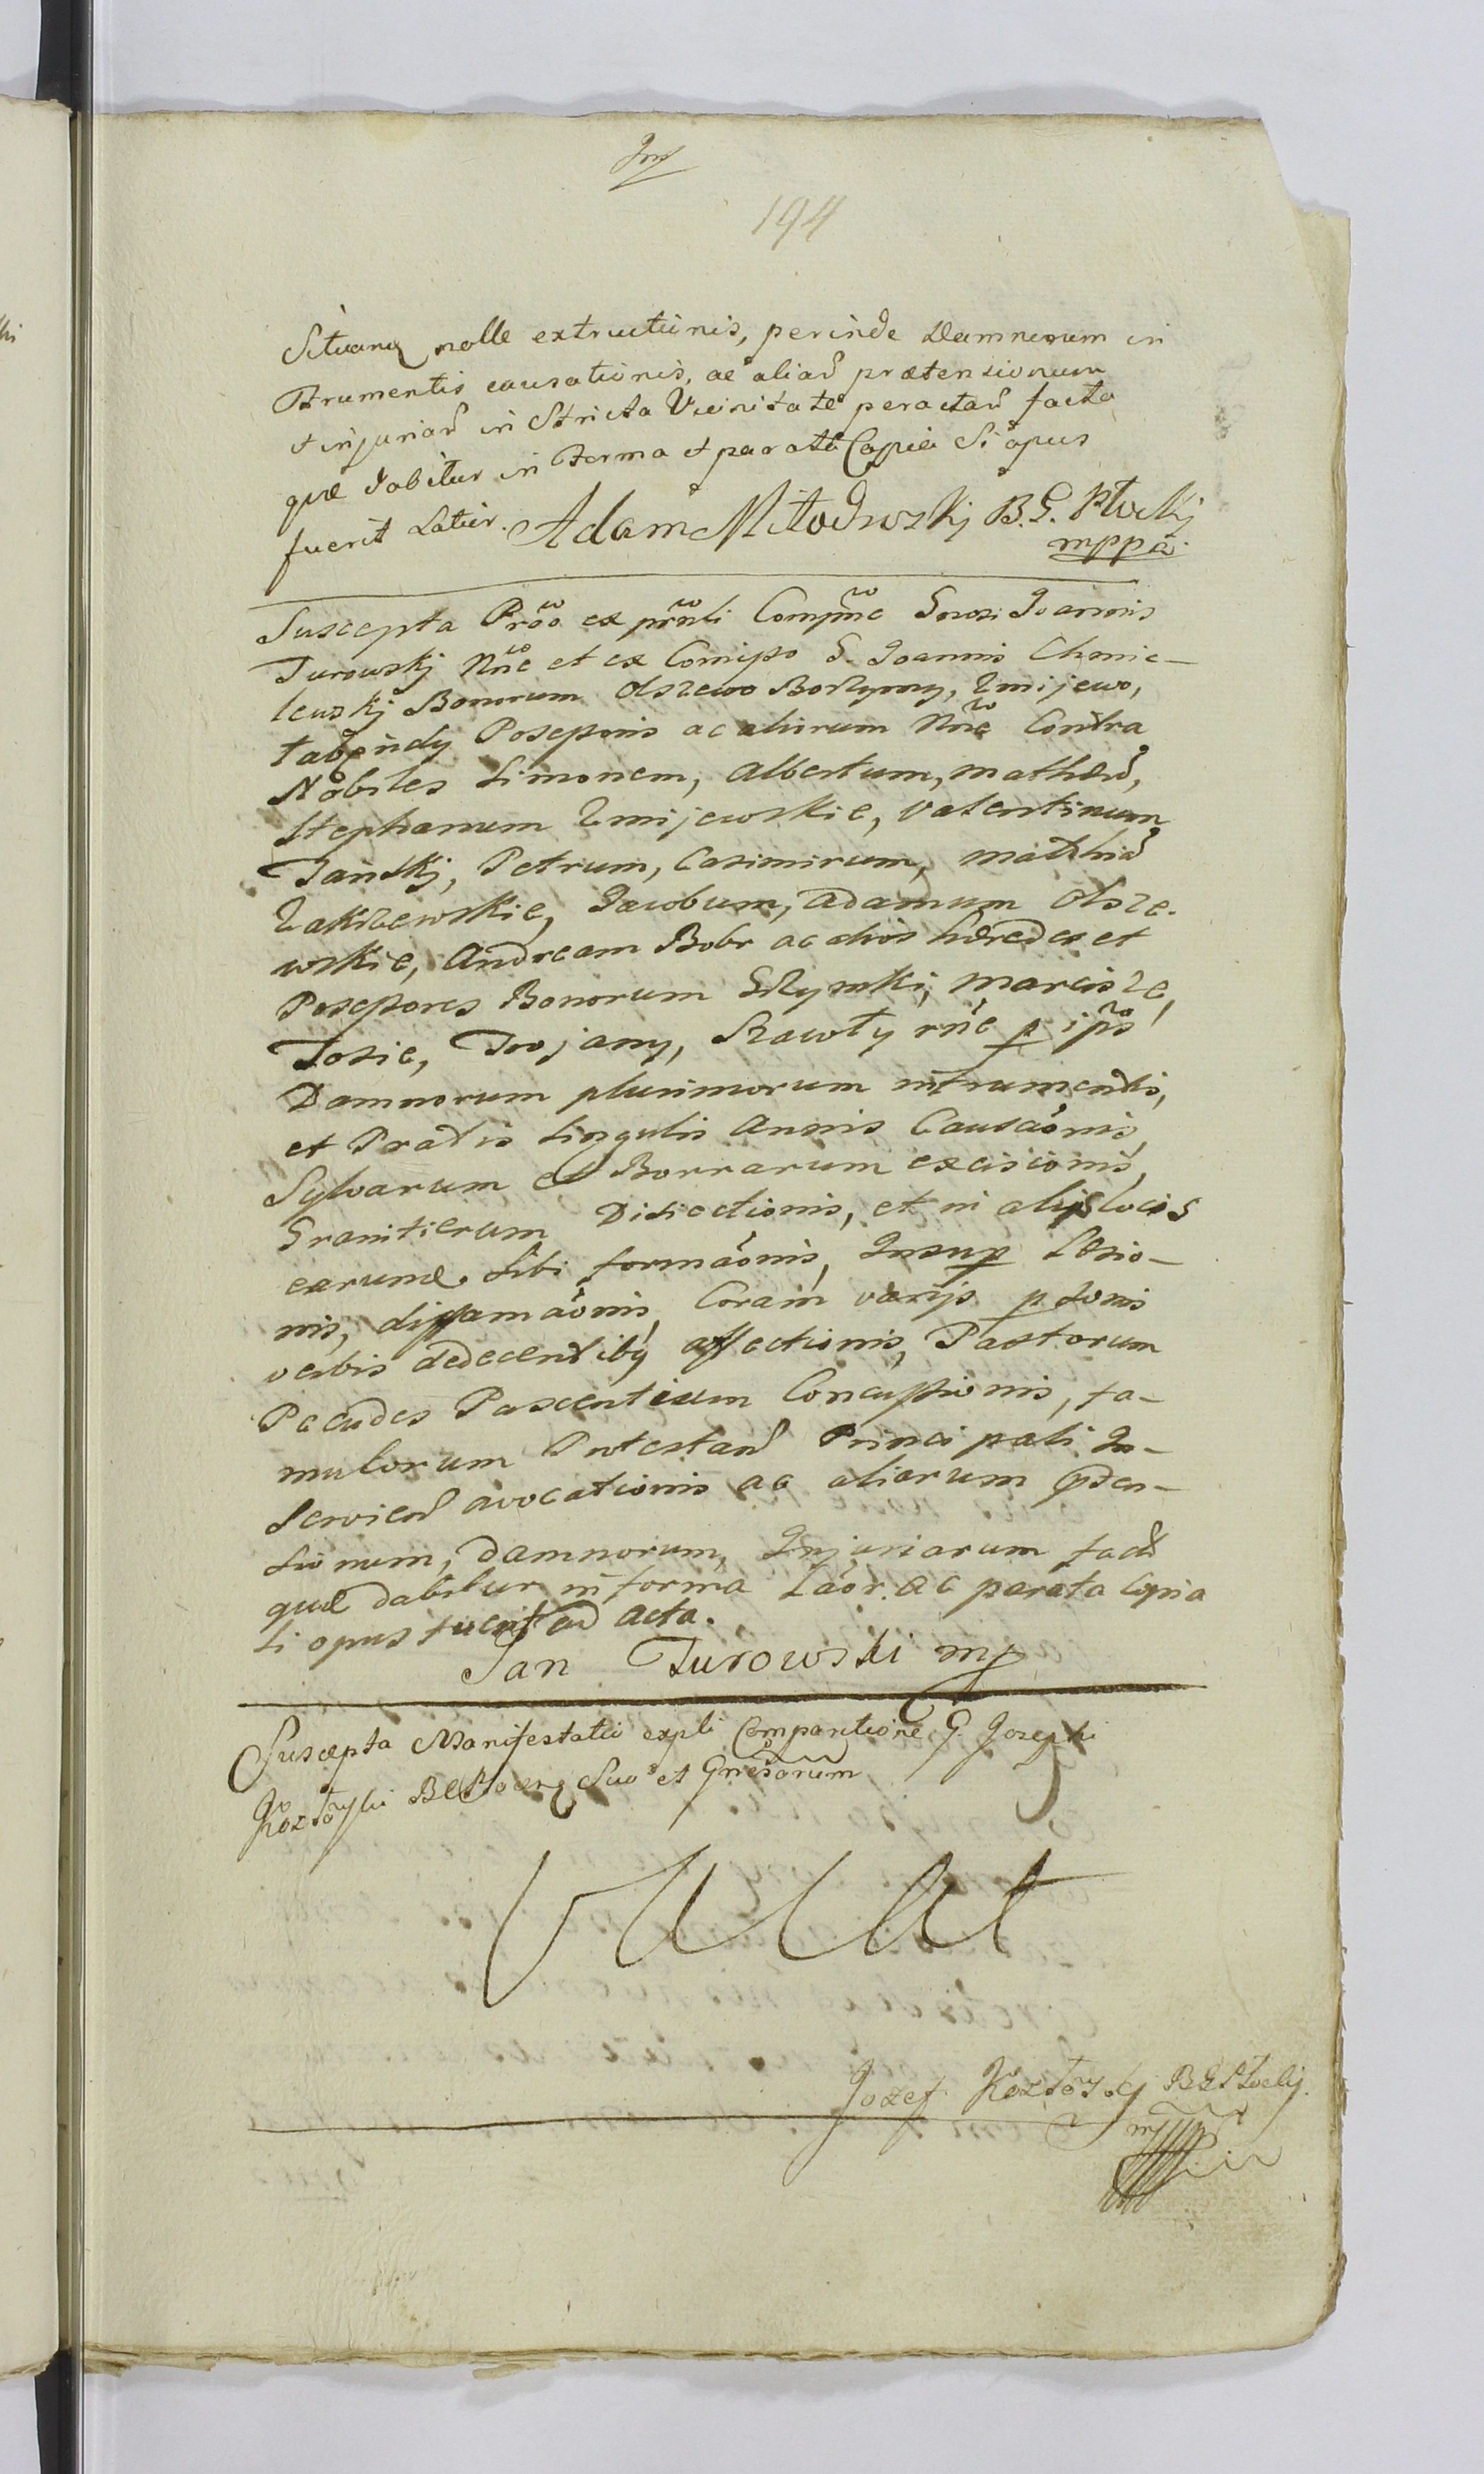 194
Situanq nolle extructionis, perinde Damnorum in
Frumentis causationis, ac aliar prætensionum
et injuriar in Stricta Vicinitate peractar facta
quæ dabitur in Forma et parata Copia Si opus
fuerit Latior. Adam Miłodrowskj B. G. Płockj
mppa.
Suscepta Prõõ ex prñti Compñe Gnosi Joannis
Turowskj Nñe et ex Comipo G. Joannis Chmie-
lewskj Bonorum Olszewo Borzymy, Zmijewo,
Poseponis ac aliorum Nñe Contra
Nobiles Simonem, Albertum, Mathæu,
Stephanum Zmijewskie, Valentinum
Janskj, Petrum, Casimirum, Mathia
Zakrzewskie, Jacobum, Adamum Olsze-
wskie, Andream Bobr ac alios hæredes et
Posepores Bonorum Marcisze,
Tosie, Trojany, Szawły rñe p ips
Damnorum plurimorum in frumentis,
et Pratis Singulis Annis Causaonis,
Sylvarum et Borrarum excisionis,
Granitierum Disiectionis, et in alijs locis
earumq Sibi formaonis, Insup Læsio-
nis, diffamaonis, Coram varijs psonis
verbis dedecentibq affectionis, Pastorum
Pecudes Pascentium Concussionis, fa-
mulorum Protestan Principali In-
servien avocationis ac aliarum pten-
sionum, damnorum, Injuriarum fact
quæ dabitur in forma Laor. ac parata Copia
si opus fuerit ad Acta.
Jan Turowski mp
Suscepta Manifestatio expli Comparitione G. Josephi
Kozłowski B G Płocen Suo et Gnesarum
Vacat
Jozef Kozłowskj B G Płockij.
mp